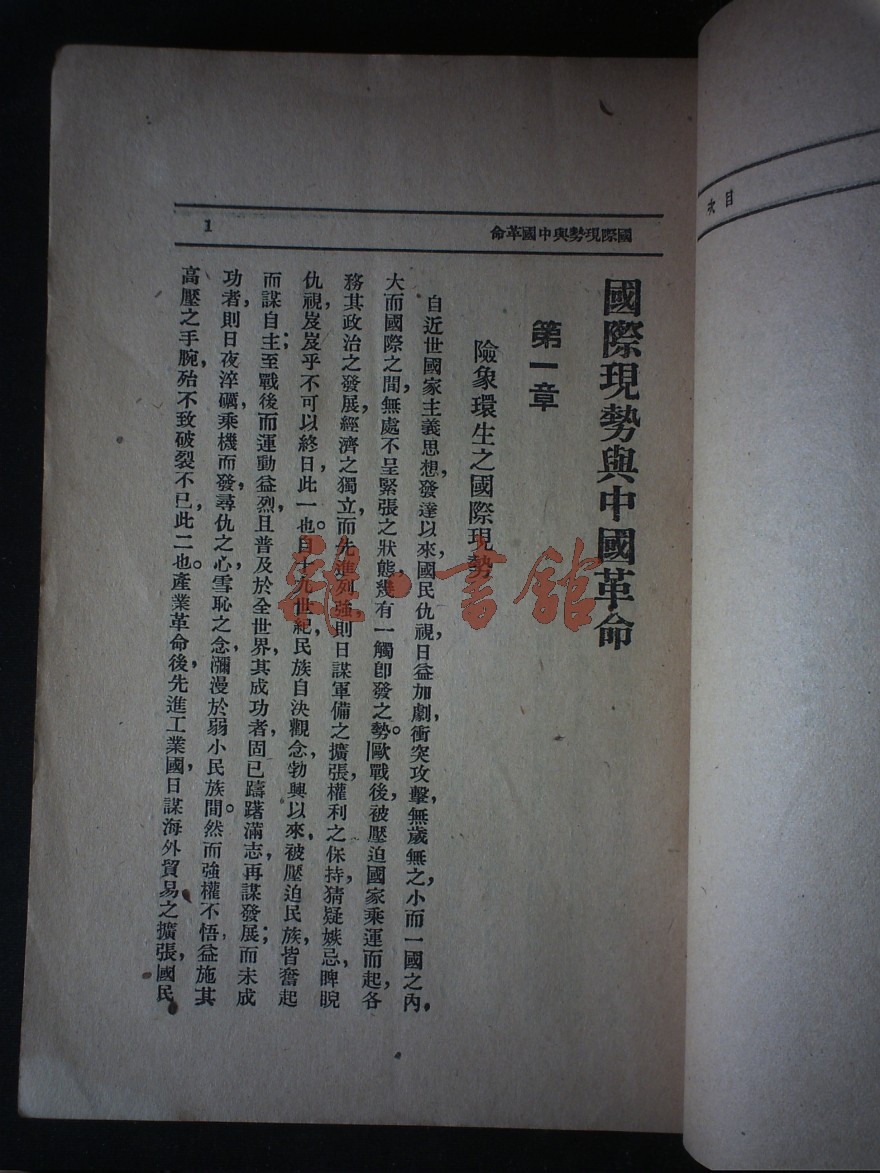 目次
國際現勢與中國革命
1
國際現勢與中國革命
第一章
險象環生之國際現勢
自近世國家主義思想,發達以來國民仇視日益加劇,衝突攻擊,無歲無之,小而一國之內,
大而國際之間,無處不呈緊張之狀態,幾有一觸卽發之勢。歐戰後,被壓迫國家乘運而起,各
務其政治之發展,經濟之獨立,而先進列強,則日謀軍備之擴張,權利之保持,猜疑嫉忌,睥睨
仇視,岌岌乎不可以終日,此一也。自十九世紀民族自決觀念,勃興以來,被壓迫民族,皆奮起
而謀自主;至戰後而運動益烈,且普及於全世界,其成功者,固已躊躇滿志,再謀發展;而未成
功者,則日夜淬礪,乘機而發,尋仇之心,雪恥之念,瀰漫於弱小民族間。然而強權不悟,益施其
高壓之手腕,殆不致破裂不已,此二也。產業革命後,先進工業國,日謀海外貿易之擴張,國民
雜·書館